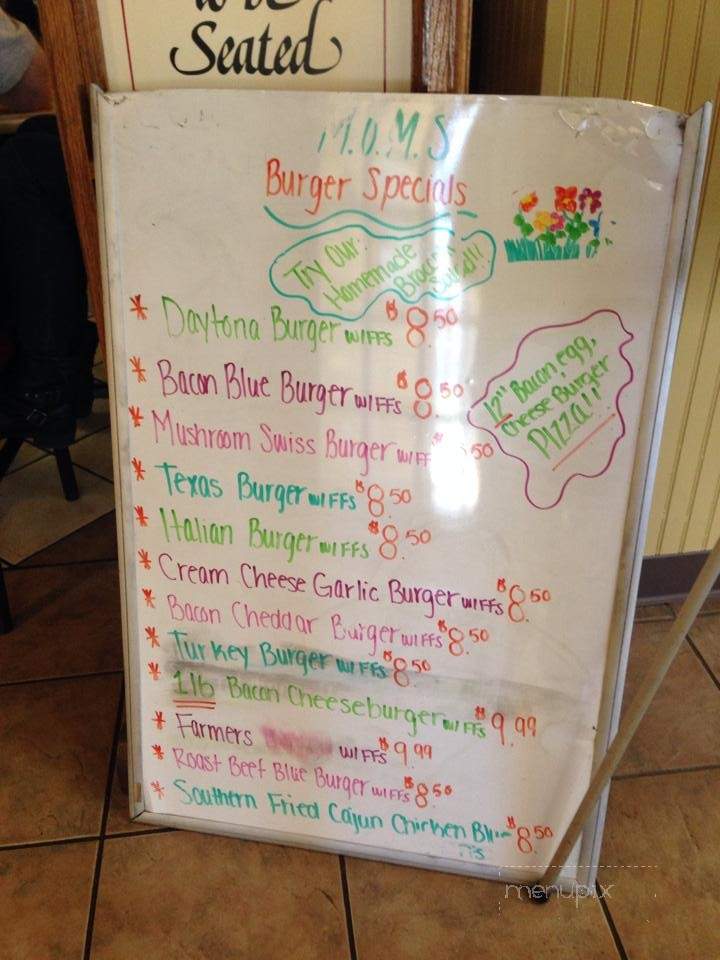 Seated
M.O.M.S
Burger Specials
Try Our
Homemade
Broccoli
Salad!!
* Daytona Burger W/FFS $8.50
* Bacon Blue Burger W/FFS $8.50
12" Bacon, egg,
Cheese Burger
Pizza!!
* Mushroom Swiss Burger W/FF 50
* Texas Burger W/FFS $8.50
* Italian Burger W/FFS $8.50
* Cream Cheese Garlic Burger W/FFS $8.50
* Bacon Cheddar Burger W/FFS $8.50
* Turkey Burger W/FFS $8.50
* 1 lb Bacon Cheeseburger W/FFS $9.99
* Farmers W/FFS $9.99
* Roast Beef Blue Burger W/FFS $8.50
* Southern Fried Cajun Chicken $8.50
menupix